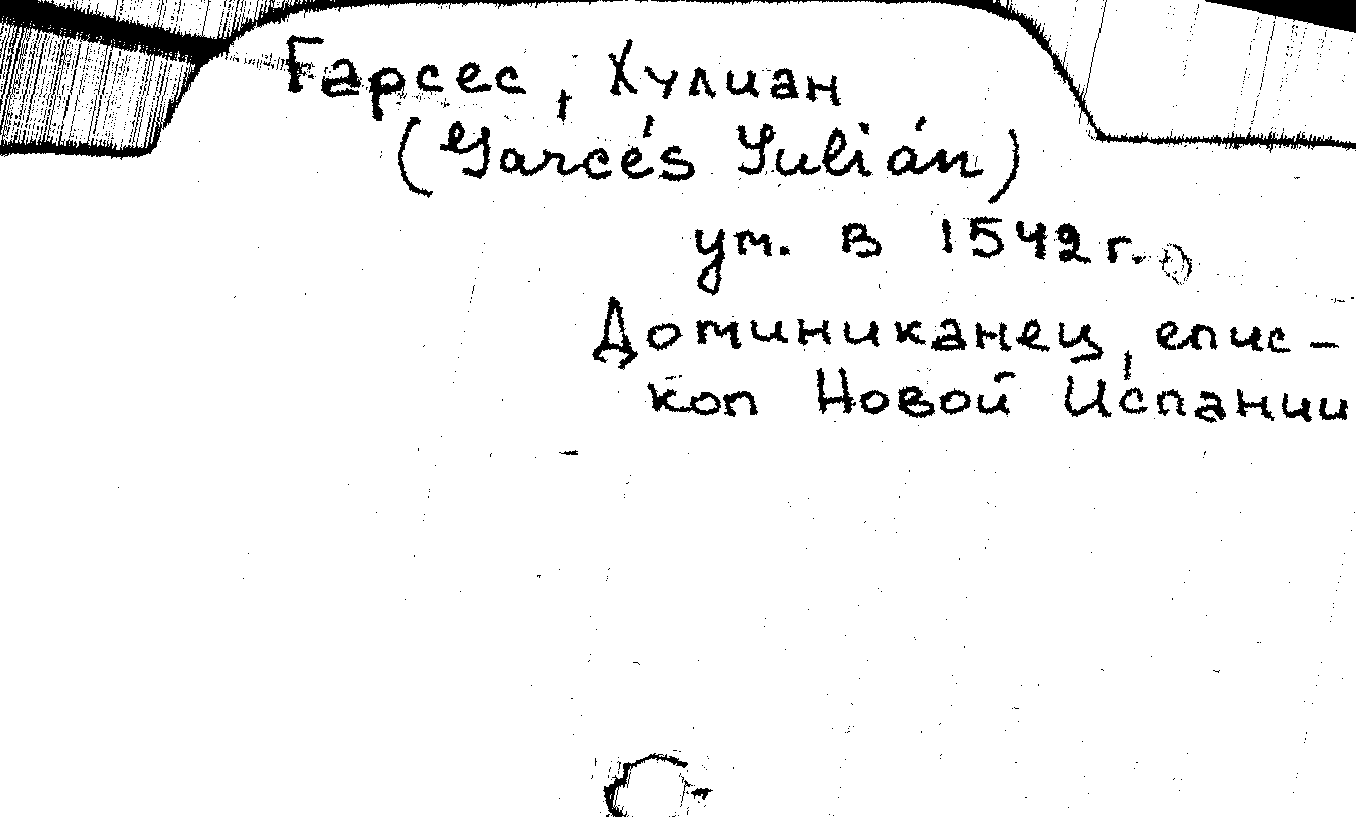 Гарсес, Хулиан
(Garcés Julián)
ум. в 1542 г.
Доминиканец, епис-
коп Новой Испании